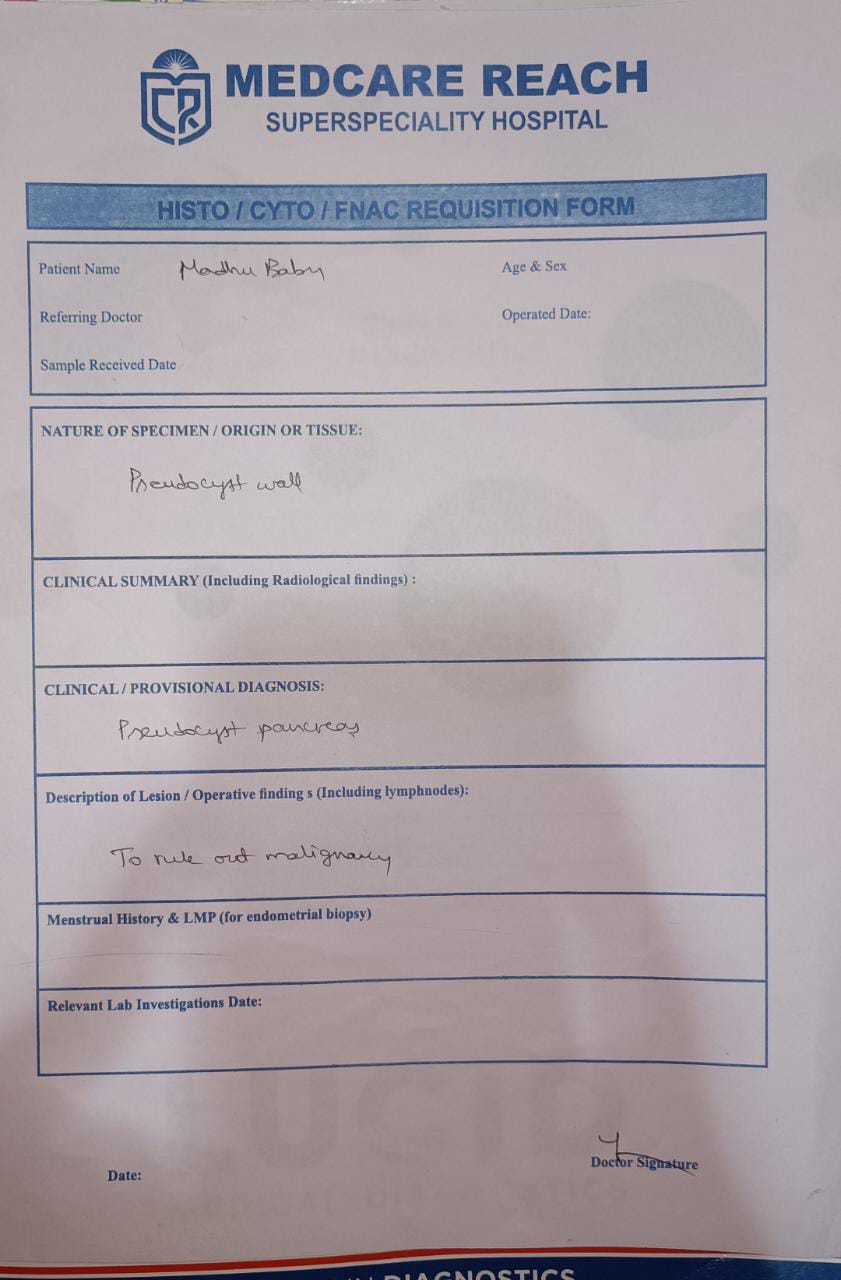 MEDCARE REACH
SUPERSPECIALITY HOSPITAL
HISTO / CYTO / FNAC REQUISITION FORM
Patient Name Madhu Baby Age & Sex
Referring Doctor Operated Date:
Sample Received Date
NATURE OF SPECIMEN / ORIGIN OR TISSUE:
Pseudocyst wall
CLINICAL SUMMARY (Including Radiological findings) :
CLINICAL / PROVISIONAL DIAGNOSIS:
Pseudocyst pancreas
Description of Lesion / Operative finding s (Including lymphnodes):
To rule out malignancy
Menstrual History & LMP (for endometrial biopsy)
Relevant Lab Investigations Date:
Date: Doctor Signature
DIAGNOSTICS